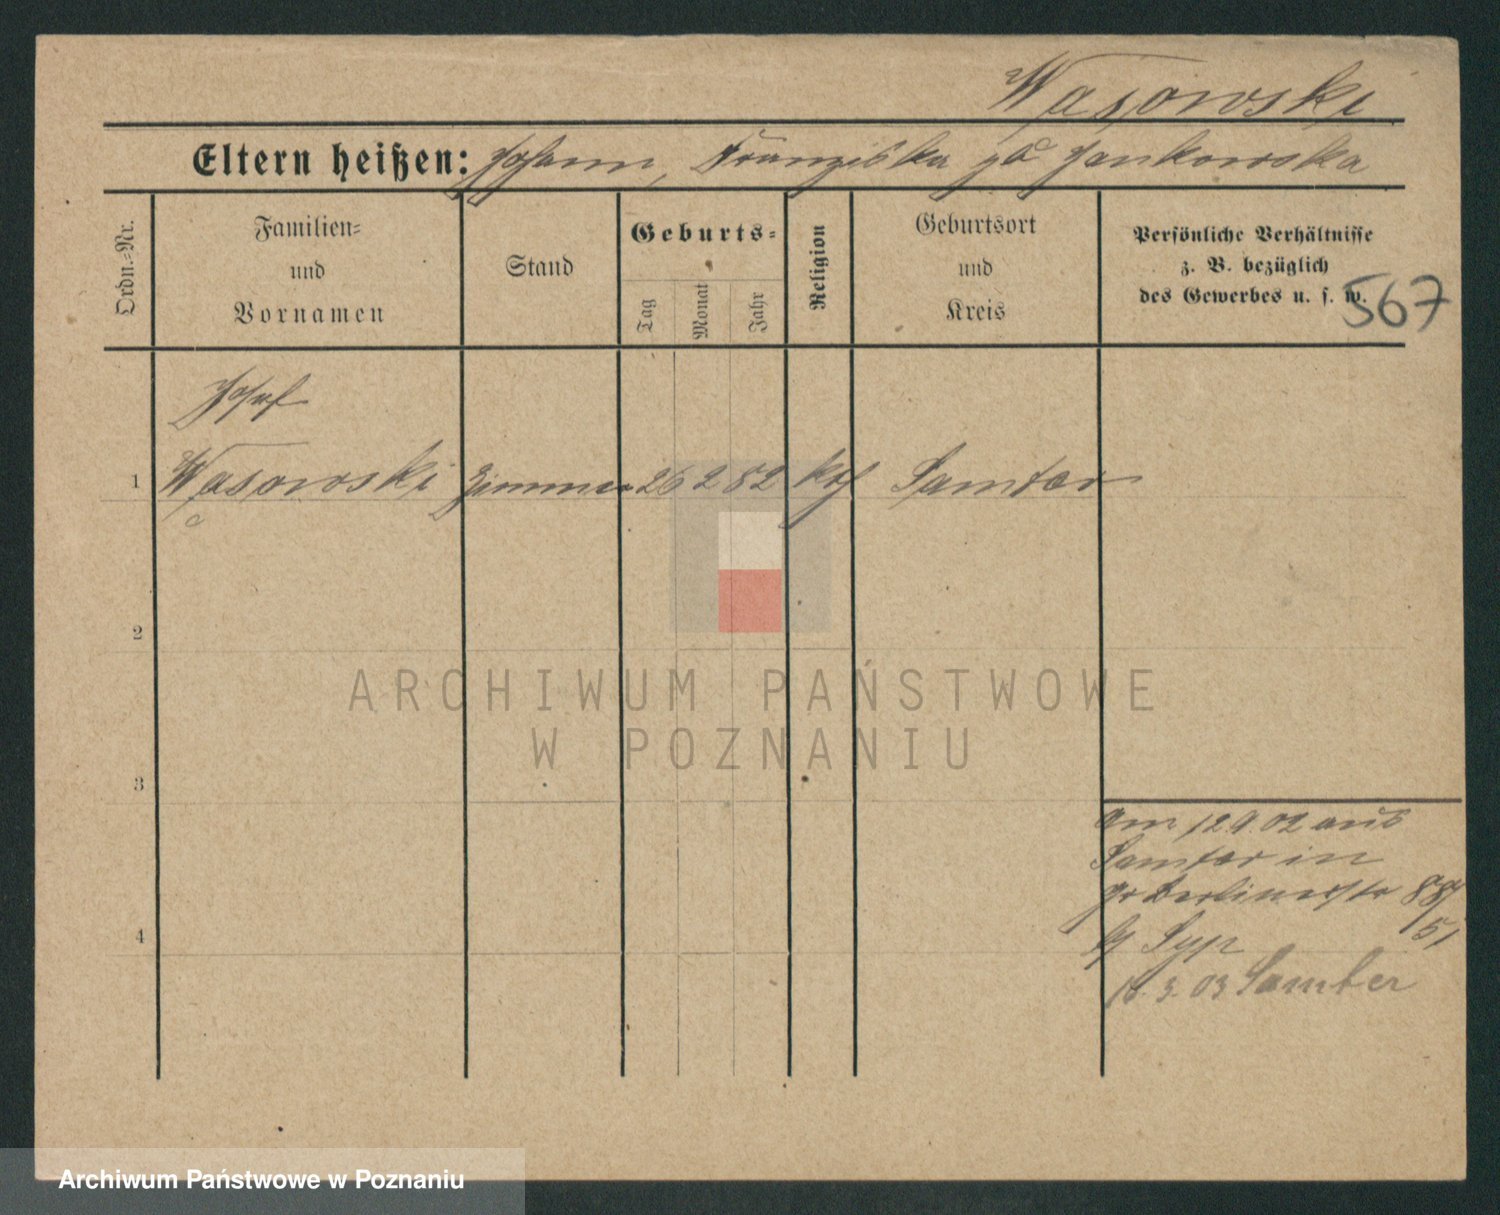 Wasowski
Eltern heißen: Johann, Franziska gb Jankowska
Ordn.=Nr.
Familien=
und
Vornamen
Stand
Geburts=
Tag
Monat
Jahr
Religion
Geburtsort
und
Kreis
Persönliche Verhältnisse
z. B. bezüglich
des Gewerbes u. s. w.
567
Josef
1 Wasowski Zimmer 26 2 82 kth Samter
2
3
4
am 12 9 02 aus
Samter in
gr Berlinerstr 88/
51
b/
16. 3. 03 Samter
ARCHIWUM PAŃSTWOWE
W POZNANIU
Archiwum Państwowe w Poznaniu